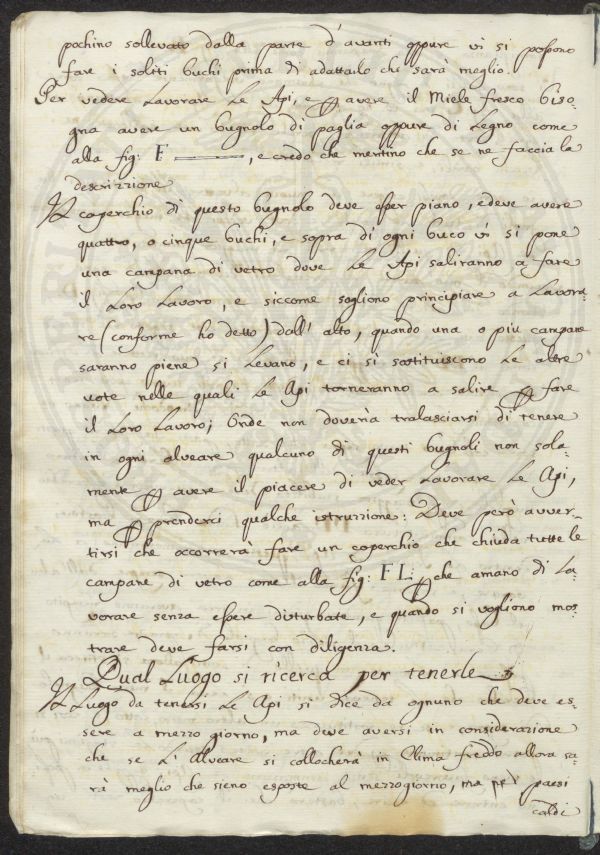 pochino sollevato dalla parte d'avanti oppure vi si possono
fare i soliti buchi prima di adattailo che sarà meglio.
Per vedere Lavorare Le Api, e ꝑ avere il Miele fresco biso-
gna avere un bugnolo di paglia oppure di Legno come
alla fig: F , e credo che meritino che se ne faccia la
descrizzione
Il cogerchio di questo bugnolo deve esser piano, e deve avere
quattro, o cinque buchi, e sopra di ogni buco vi si pone
una campana di vetro dove Le Api saliranno a fare
il Loro Lavoro, e siccome sogliono principiare a Lavora-
re (conforme ho detto) dall' alto, quando una o piu campane
saranno piene si Levano, e ci si sostituiscono Le altre
vote nelle quali Le Api torneranno a salire ꝑ fare
il Loro Lavoro; Onde non doveria tralasciarsi di tenere
in ogni alveare qualcuno di questi bugnoli non sola-
mente ꝑ avere il piacere di veder Lavorare Le Api,
ma ꝑ prenderci qualche istruzzione: Deve però avver-
tirsi che occorrerà fare un coperchio che chiuda tutte le
campane di vetro come alla fig: FL. ꝑche amano di La-
vorare senza essere disturbate, e quando si vogliono mos-
trare deve farsi con diligenza.
Qual Luogo si ricerca per tenerle
Il Luogo da tenersi Le Api si dice da ognuno che deve es-
sere a mezzo giorno, ma deve aversi in considerazione
che se L' Alveare si collocherà in Clima freddo allora sa-
rà meglio che sieno esposte al mezzogiorno, ma pei paesi
caldi